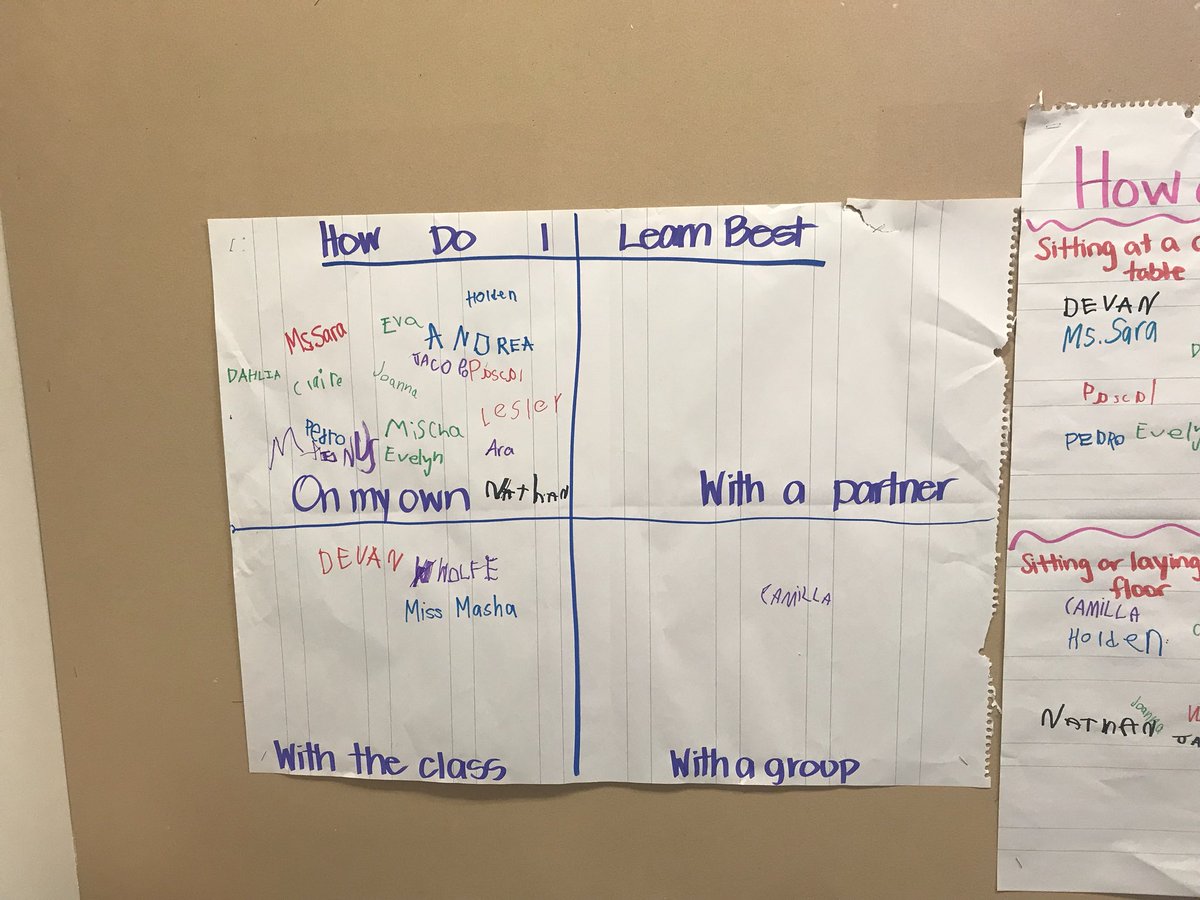 How Do I Learn Best
Holden
Ms.Sara
Eva
ANDREA
JACOPO
Pascal
DAHLIA
Claire
Joanna
Lesley
Pedro
Mischa
Evelyn
Ara
On my own
Nathan
With a partner
DEVAN
WOLFE
Miss Masha
With the class
CAMILLA
With a group
How
Sitting at a
table
DEVAN
Ms. Sara
Pascal
PEDRO
Sitting or laying
floor
CAMILLA
Holden
NATHAN
Joanna